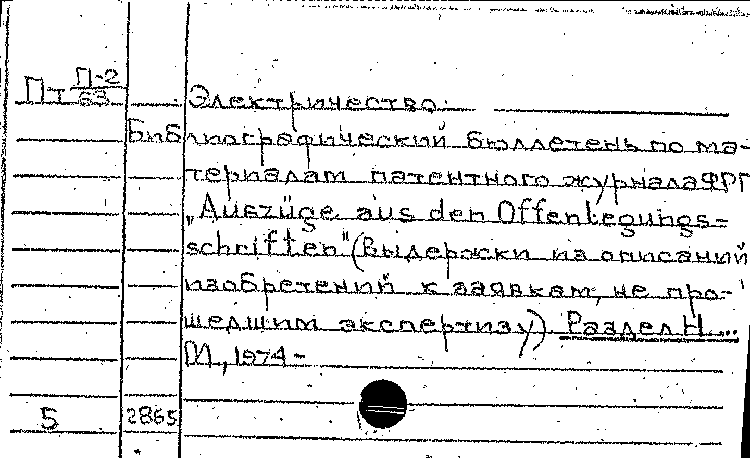 Пт П-2/63
Электричество:
Библиографический бюллетень по ма-
териалам патентного журнала ФРГ
„Auszüge aus den Offenlegungs-
schriften" (Выдержки из описаний
изобретений к заявкам, не про-
шедшим экспертизу). Раздел Н....
М., 1974-
5 2865